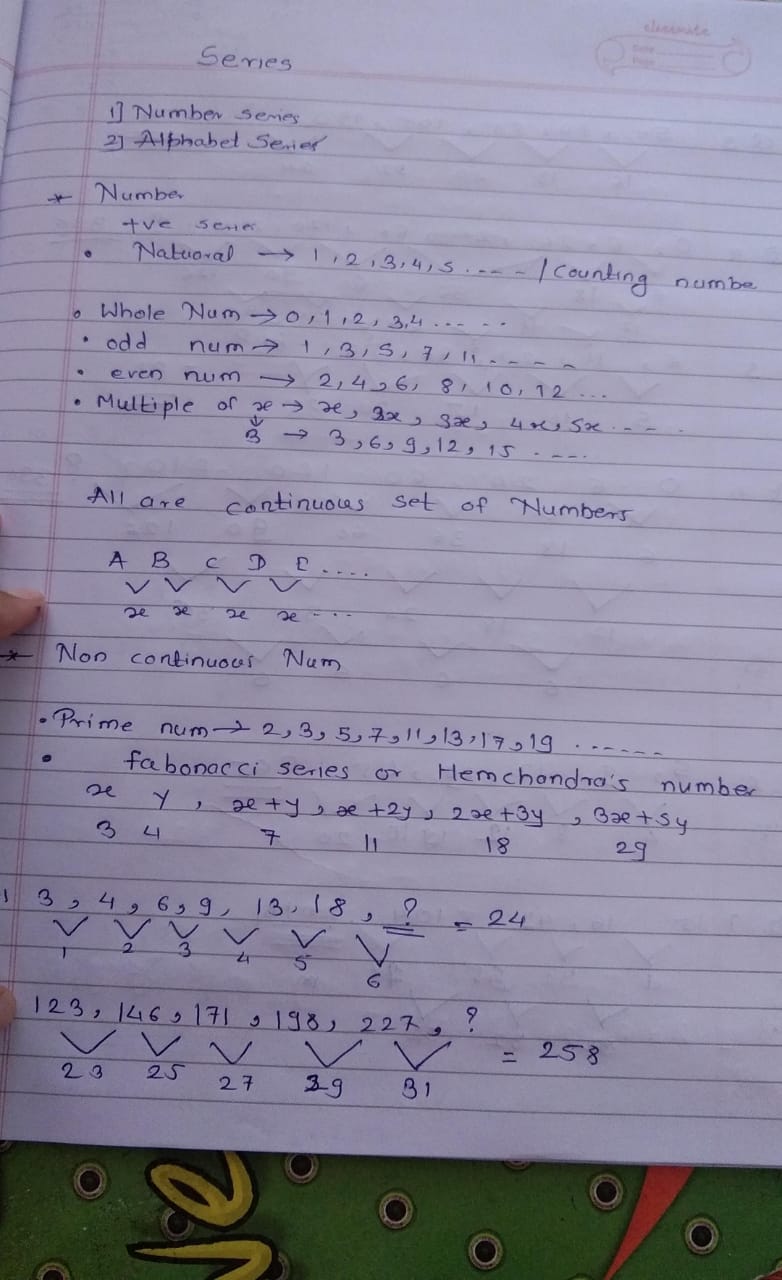 classmate
Date
Page
Series
1] Number series
2] Alphabet Series
* Number
+ve series
• Natuoral → 1, 2, 3, 4, 5 .--- / Counting numbe
• Whole Num → 0, 1, 2, 3, 4 ... --
• odd num → 1, 3, 5, 7, 11 - - - -
• even num → 2, 4, 6, 8, 10, 12 ...
• Multiple of x → x, 2x, 3x, 4x, 5x ...-
↓
3 → 3, 6, 9, 12, 15 . ---.
All are continuous set of Numbers
A B C D E ....
x x x x ...
* Non continuous Num
• Prime num → 2, 3, 5, 7, 11, 13, 17, 19 ......
• fabonacci series or Hemchandra's number
x y, x+y, x+2y, 2x+3y, 3x+5y
3 4 7 11 18 29
3, 4, 6, 9, 13, 18, ? = 24
1 2 3 4 5 6
123, 146, 171, 198, 227, ? = 258
23 25 27 29 31